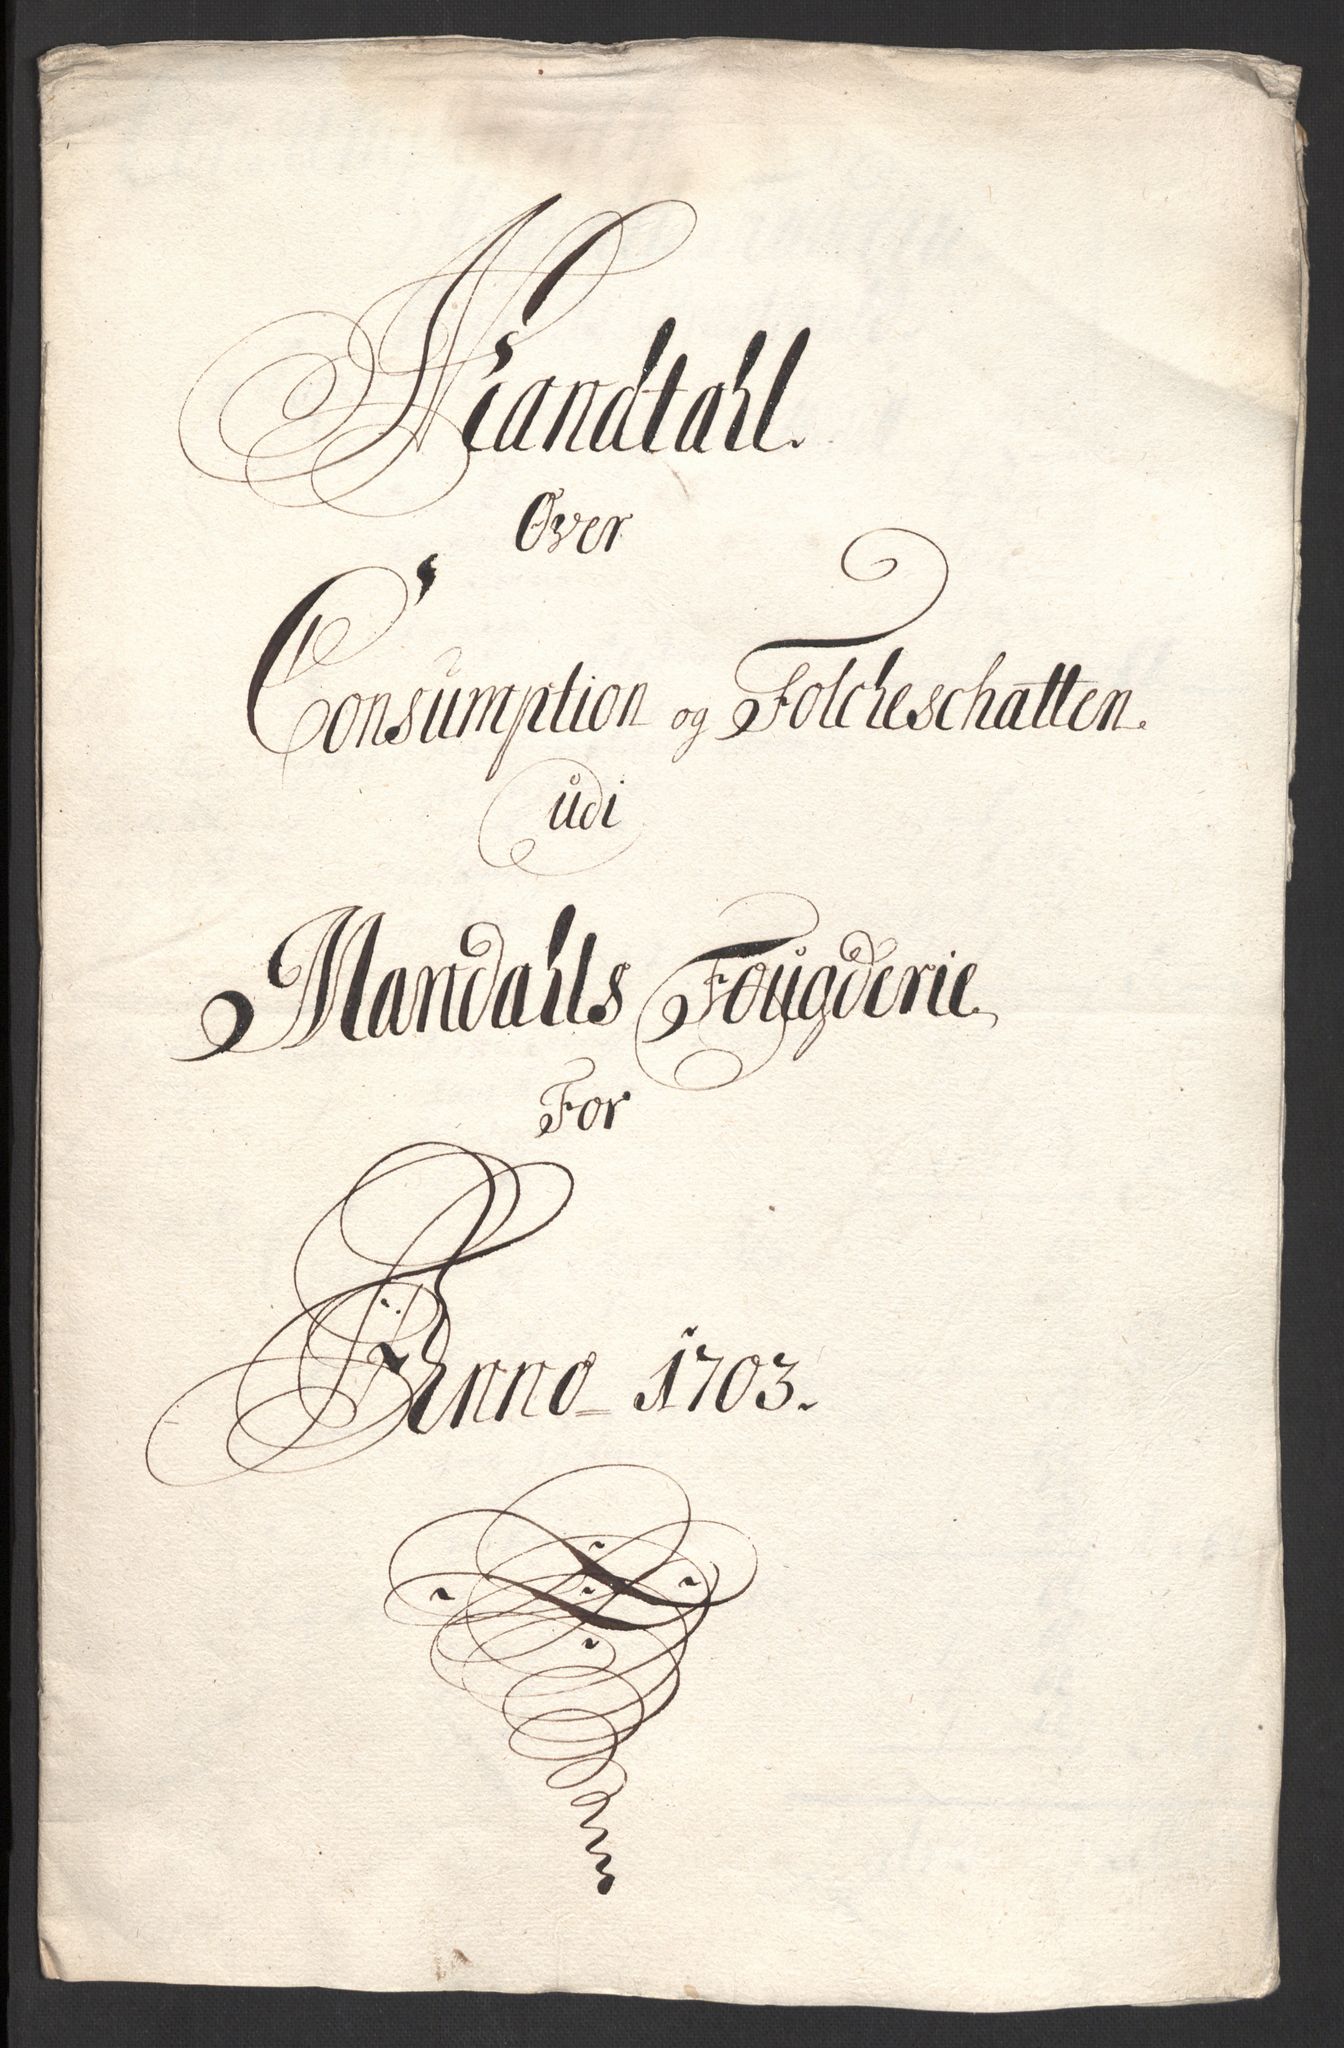 Mandtahl.
Over
Consumption og Folcheschatten.
udi
Mandahls Fougderie.
For
Anno 1703.